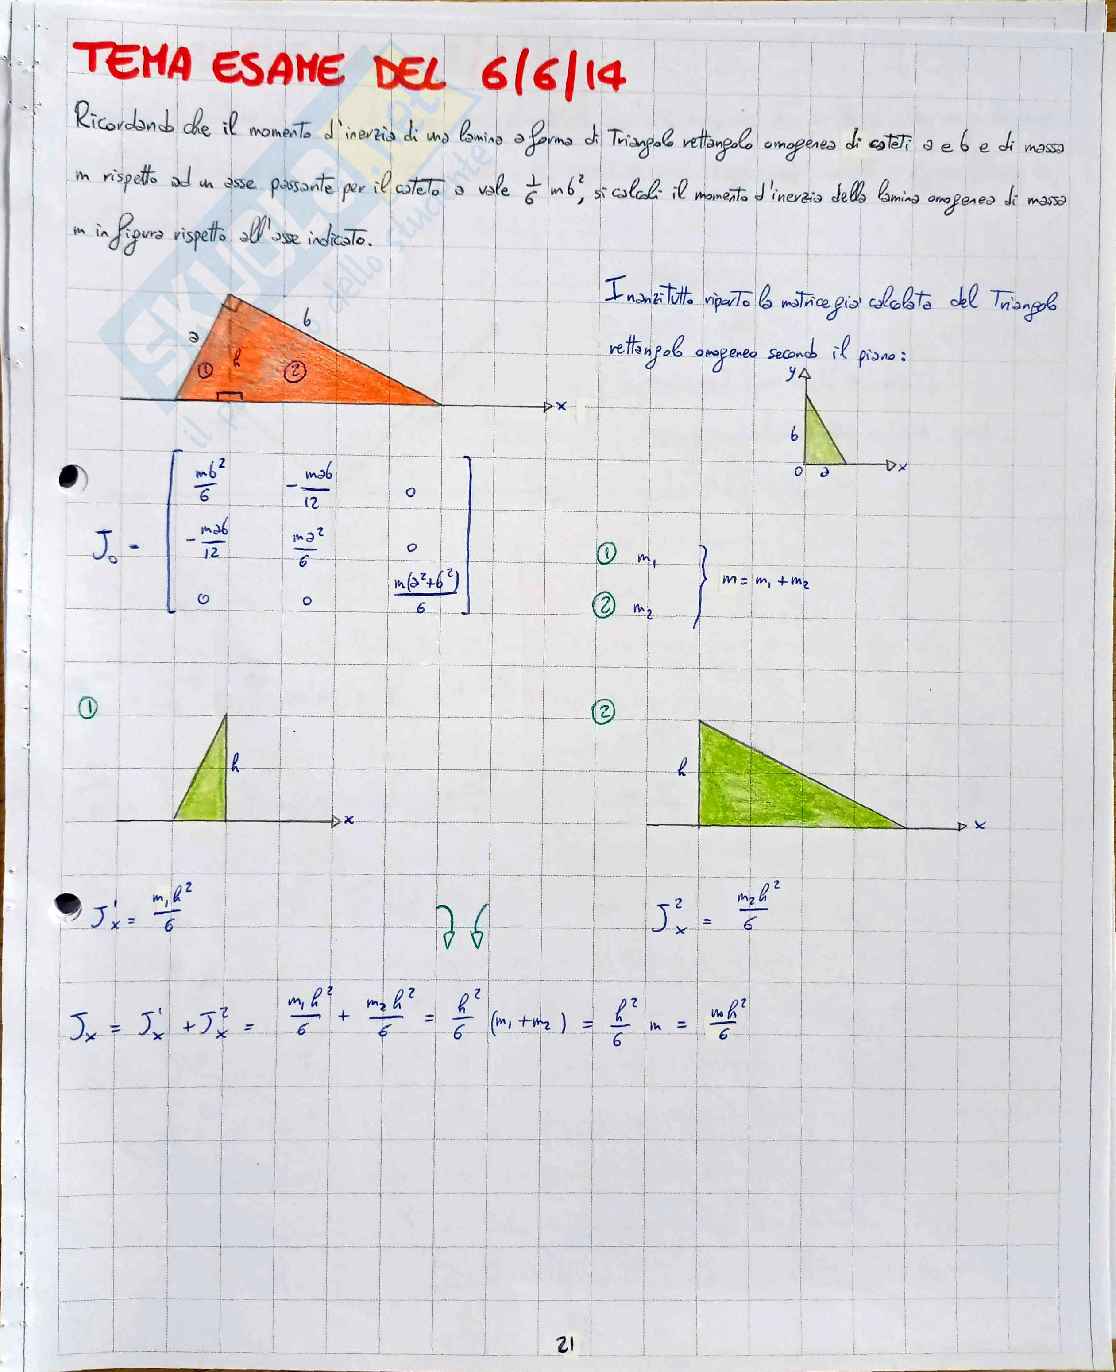 TEMA ESAME DEL 6/6/14
Ricordando che il momento d'inerzia di una lamina a forma di Triangolo rettangolo omogenea di cateti a e b e di massa
m rispetto ad un asse passante per il cateto a vale 1/6 mb², si calcoli il momento d'inerzia della lamina omogenea di massa
m in figura rispetto all'asse indicato.
Inanzitutto riporto la matrice gia' calcolata del Triangolo
rettangolo omogeneo secondo il piano:
a b h ① ② x
y b 0 a x
J₀ = [ mb²/6 -mab/12 0
-mab/12 ma²/6 0
0 0 m(a²+b²)/6 ]
① m₁
② m₂ } m = m₁ + m₂
① ②
h x
h x
Jx¹ = m₁h²/6
Jx² = m₂h²/6
Jx = Jx¹ + Jx² = m₁h²/6 + m₂h²/6 = h²/6 (m₁+m₂) = h²/6 m = mh²/6
21
SKUOLA.net